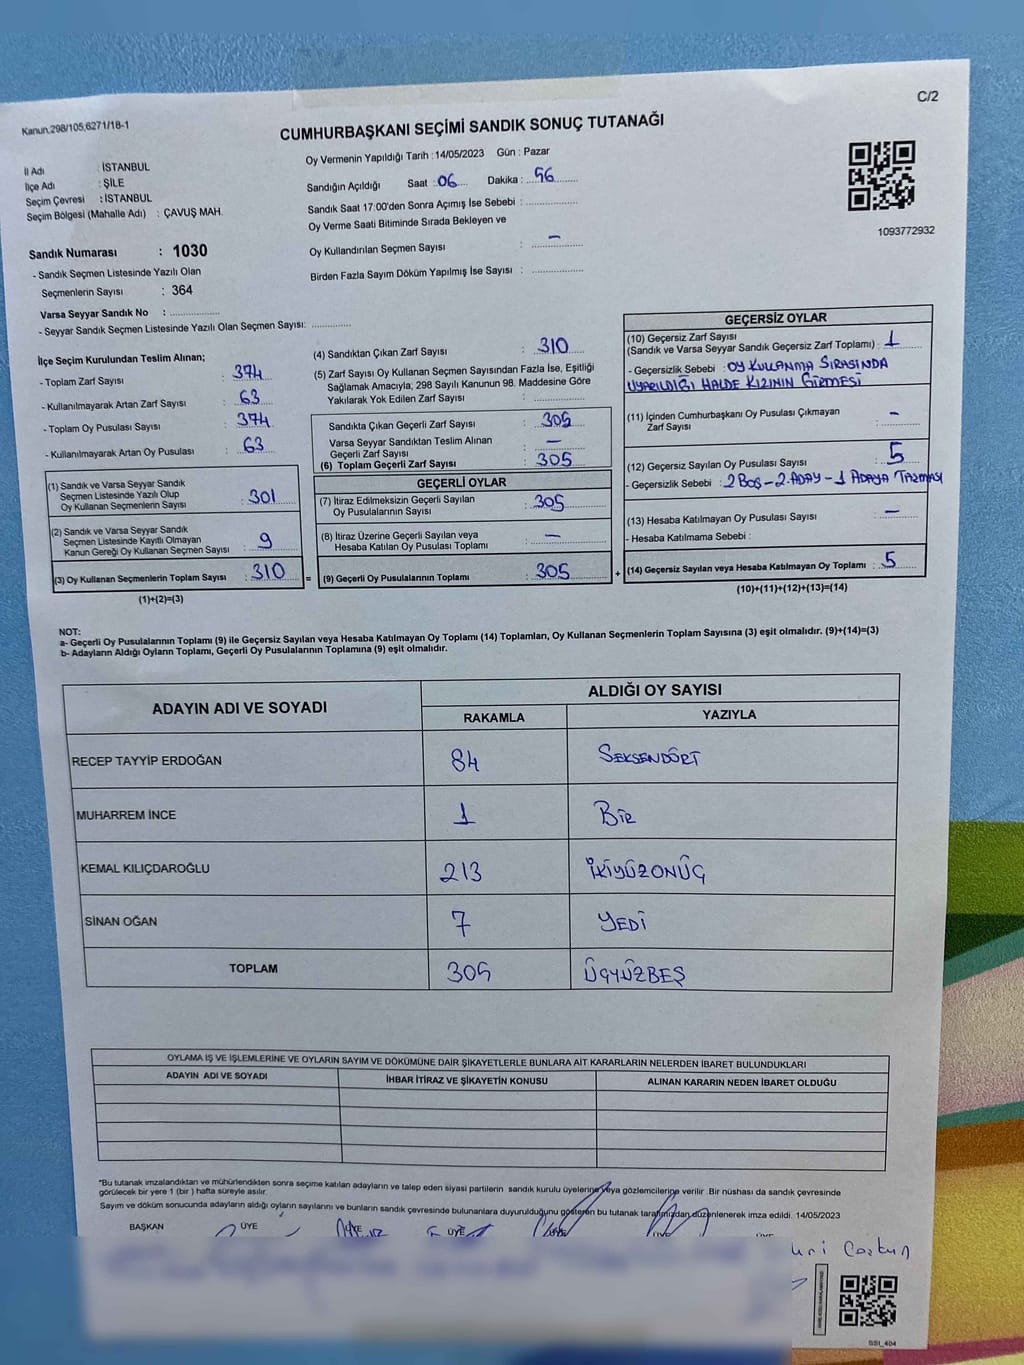 C/2
Kanun.298/105;6271/18-1
CUMHURBAŞKANI SEÇİMİ SANDIK SONUÇ TUTANAĞI
İl Adı : İSTANBUL
İlçe Adı : ŞİLE
Seçim Çevresi : İSTANBUL
Seçim Bölgesi (Mahalle Adı) : ÇAVUŞ MAH.
Sandık Numarası : 1030
- Sandık Seçmen Listesinde Yazılı Olan
Seçmenlerin Sayısı : 364
Varsa Seyyar Sandık No :
- Seyyar Sandık Seçmen Listesinde Yazılı Olan Seçmen Sayısı:
Oy Vermenin Yapıldığı Tarih :14/05/2023 Gün : Pazar
Sandığın Açıldığı Saat :06 Dakika : 56
Sandık Saat 17:00'den Sonra Açımış İse Sebebi :
Oy Verme Saati Bitiminde Sırada Bekleyen ve
Oy Kullandırılan Seçmen Sayısı : -
Birden Fazla Sayım Döküm Yapılmış İse Sayısı :
1093772932
İlçe Seçim Kurulundan Teslim Alınan;
- Toplam Zarf Sayısı : 374
- Kullanılmayarak Artan Zarf Sayısı : 63
- Toplam Oy Pusulası Sayısı : 374
- Kullanılmayarak Artan Oy Pusulası : 63
(1) Sandık ve Varsa Seyyar Sandık
Seçmen Listesinde Yazılı Olup
Oy Kullanan Seçmenlerin Sayısı : 301
(2) Sandık ve Varsa Seyyar Sandık
Seçmen Listesinde Kayıtlı Olmayan
Kanun Gereği Oy Kullanan Seçmen Sayısı : 9
(3) Oy Kullanan Seçmenlerin Toplam Sayısı : 310
(1)+(2)=(3)
(4) Sandıktan Çıkan Zarf Sayısı : 310
(5) Zarf Sayısı Oy Kullanan Seçmen Sayısından Fazla İse, Eşitliği
Sağlamak Amacıyla; 298 Sayılı Kanunun 98. Maddesine Göre
Yakılarak Yok Edilen Zarf Sayısı :
Sandıkta Çıkan Geçerli Zarf Sayısı : 305
Varsa Seyyar Sandıktan Teslim Alınan
Geçerli Zarf Sayısı : -
(6) Toplam Geçerli Zarf Sayısı : 305
GEÇERLİ OYLAR
(7) İtiraz Edilmeksizin Geçerli Sayılan
Oy Pusulalarının Sayısı : 305
(8) İtiraz Üzerine Geçerli Sayılan veya
Hesaba Katılan Oy Pusulası Toplamı : -
= (9) Geçerli Oy Pusulalarının Toplamı : 305
GEÇERSİZ OYLAR
(10) Geçersiz Zarf Sayısı
(Sandık ve Varsa Seyyar Sandık Geçersiz Zarf Toplamı) : 1
- Geçersizlik Sebebi : OY KULLANMA SIRASINDA
UYARILDIĞI HALDE KIZININ GİRMESİ
(11) İçinden Cumhurbaşkanı Oy Pusulası Çıkmayan
Zarf Sayısı : -
(12) Geçersiz Sayılan Oy Pusulası Sayısı : 5
- Geçersizlik Sebebi : 2 BOŞ - 2. ADAY - 1 ADAYA TAŞMASI
(13) Hesaba Katılmayan Oy Pusulası Sayısı : -
- Hesaba Katılmama Sebebi :
+ (14) Geçersiz Sayılan veya Hesaba Katılmayan Oy Toplamı : 5
(10)+(11)+(12)+(13)=(14)
NOT:
a- Geçerli Oy Pusulalarının Toplamı (9) ile Geçersiz Sayılan veya Hesaba Katılmayan Oy Toplamı (14) Toplamları, Oy Kullanan Seçmenlerin Toplam Sayısına (3) eşit olmalıdır. (9)+(14)=(3)
b- Adayların Aldığı Oyların Toplamı, Geçerli Oy Pusulalarının Toplamına (9) eşit olmalıdır.
ADAYIN ADI VE SOYADI ALDIĞI OY SAYISI
RAKAMLA YAZIYLA
RECEP TAYYİP ERDOĞAN 84 SEKSENDÖRT
MUHARREM İNCE 1 BİR
KEMAL KILIÇDAROĞLU 213 İKİYÜZONÜÇ
SİNAN OĞAN 7 YEDİ
TOPLAM 305 ÜÇYÜZBEŞ
OYLAMA İŞ VE İŞLEMLERİNE VE OYLARIN SAYIM VE DÖKÜMÜNE DAİR ŞİKAYETLERLE BUNLARA AİT KARARLARIN NELERDEN İBARET BULUNDUKLARI
ADAYIN ADI VE SOYADI İHBAR İTİRAZ VE ŞİKAYETİN KONUSU ALINAN KARARIN NEDEN İBARET OLDUĞU
*Bu tutanak imzalandıktan ve mühürlendikten sonra seçime katılan adayların ve talep eden siyasi partilerin sandık kurulu üyelerine veya gözlemcilerine verilir .Bir nüshası da sandık çevresinde
görülecek bir yere 1 (bir ) hafta süreyle asılır.
Sayım ve döküm sonucunda adayların aldığı oyların sayılarını ve bunların sandık çevresinde bulunanlara duyurulduğunu gösteren bu tutanak tarafımızdan düzenlenerek imza edildi. 14/05/2023
BAŞKAN ÜYE ÜYE ÜYE
SSI_404